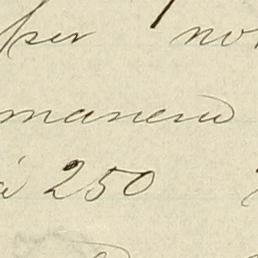 per no
manera
á 250